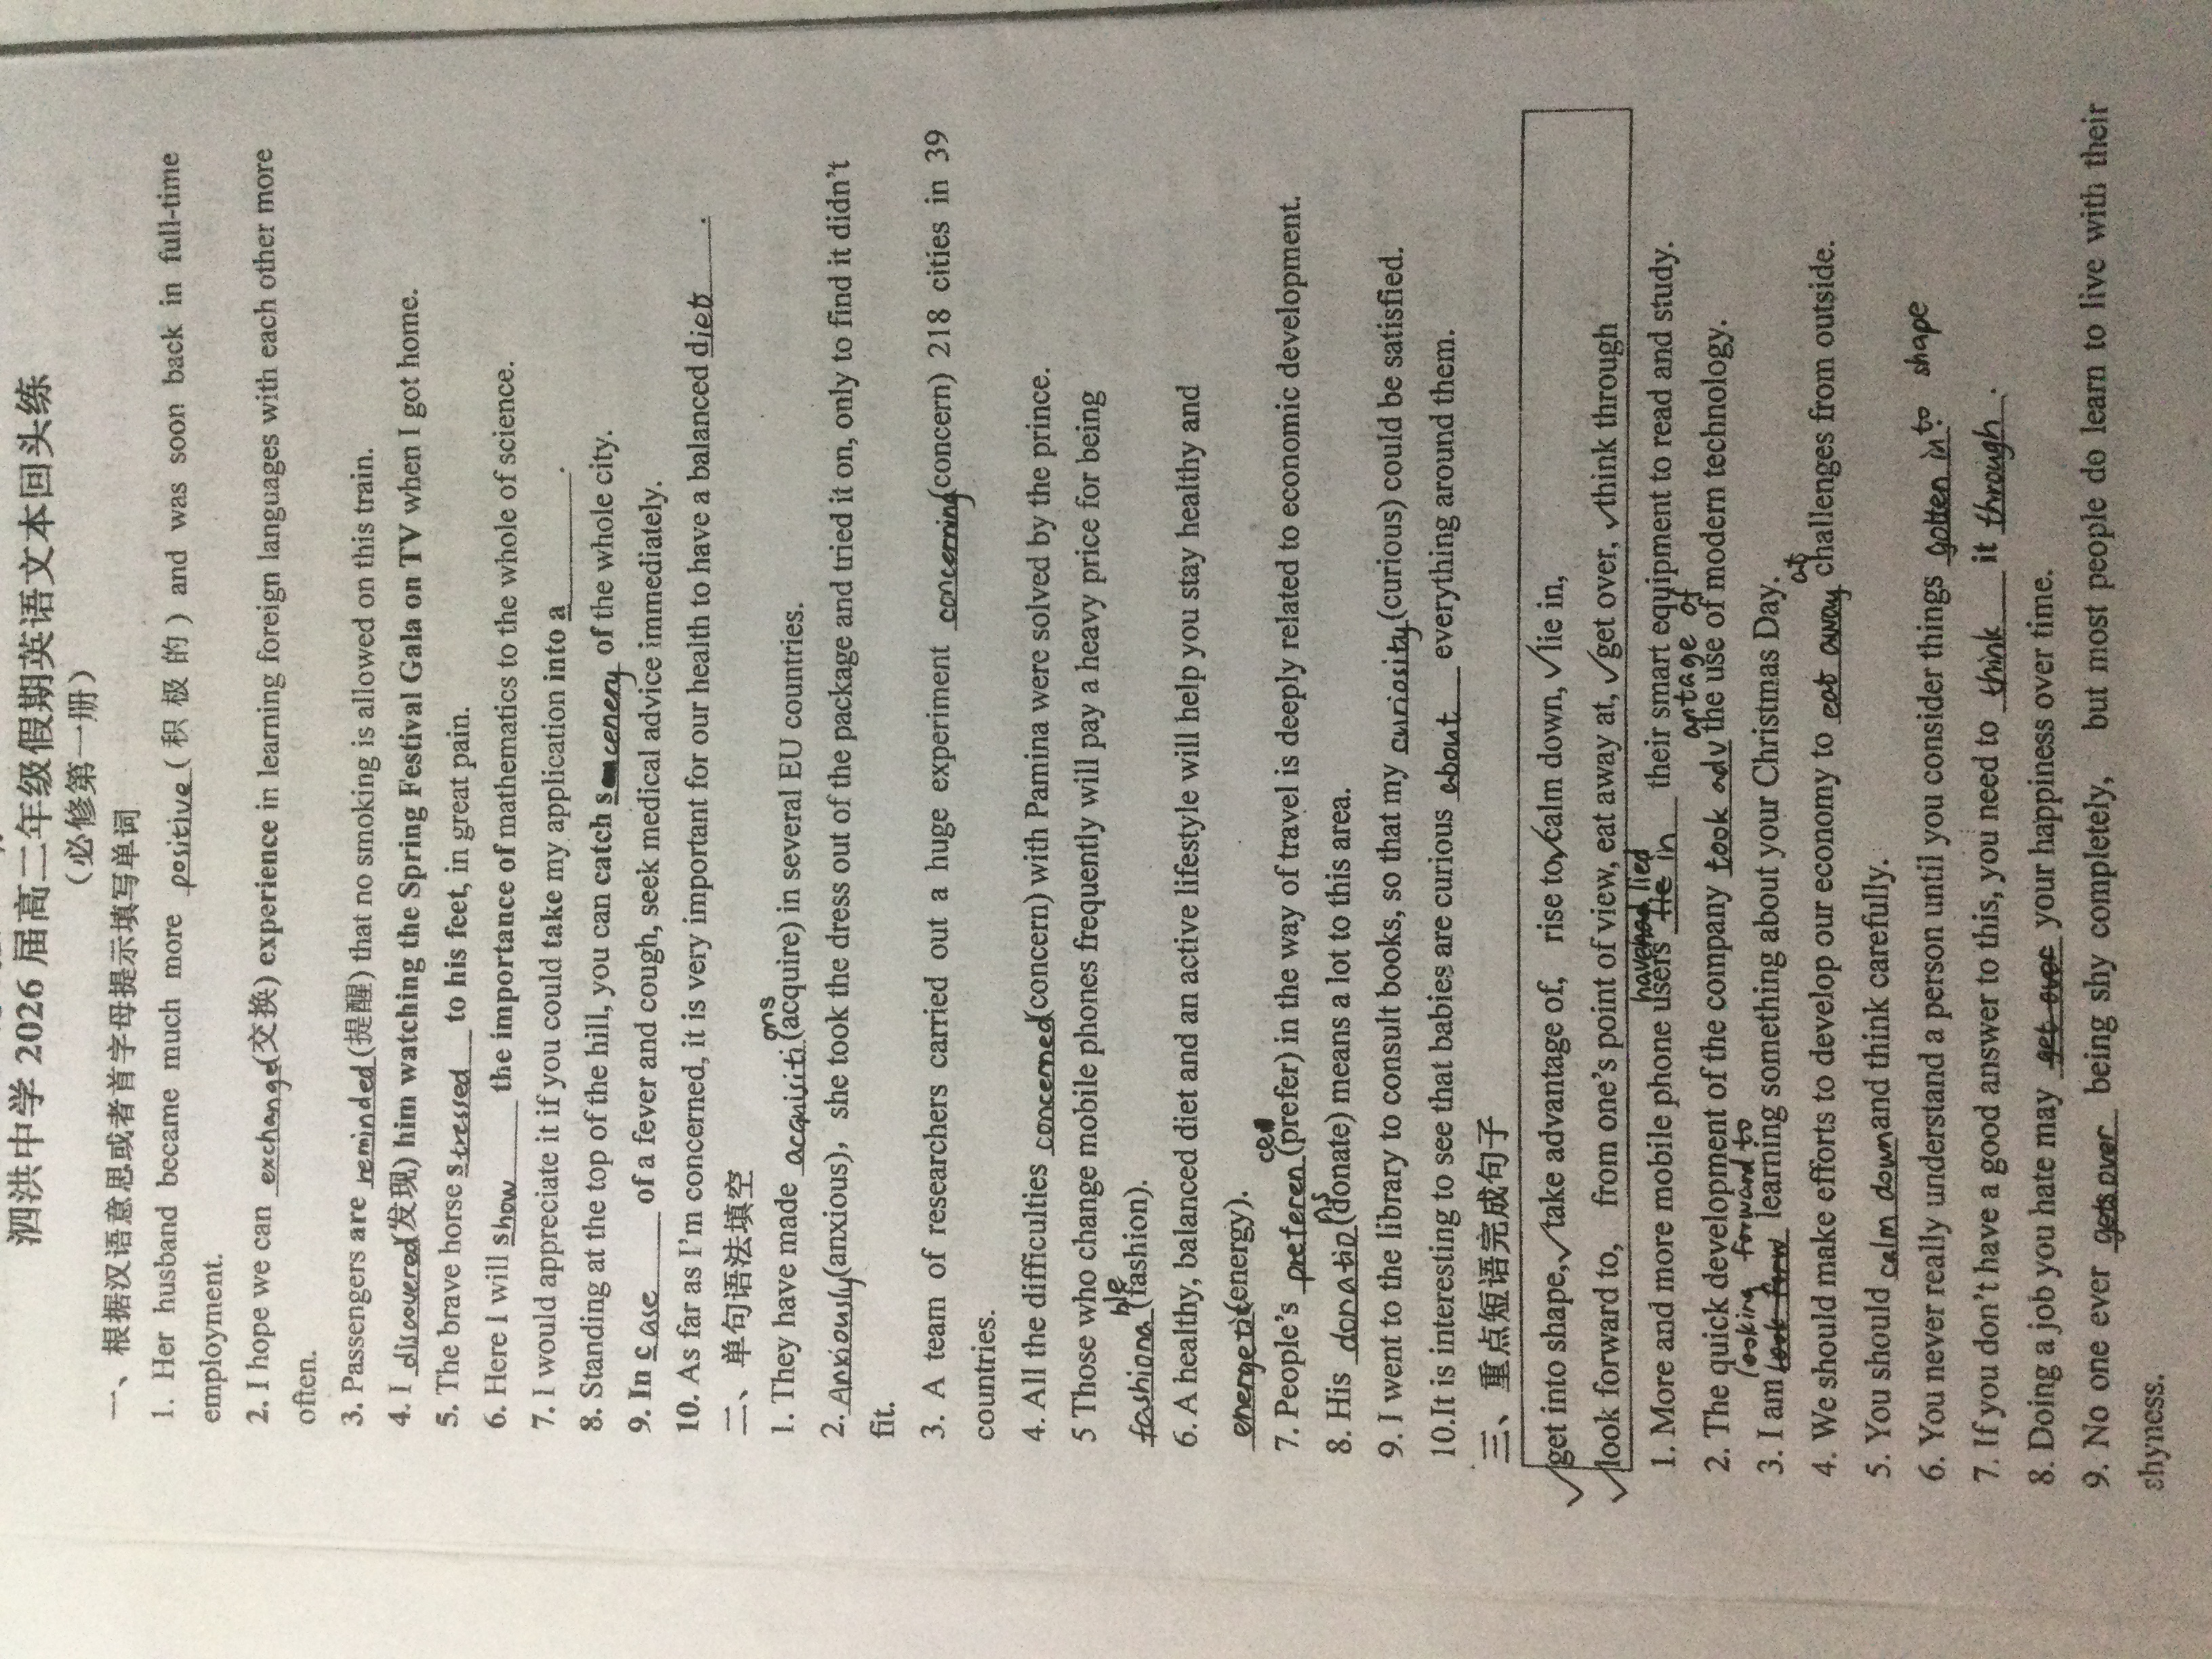 泗洪中学 2026 届高二年级假期英语文本回头练
（必修第一册）
一、根据汉语意思或者首字母提示填写单词
1. Her husband became much more positive (积极的) and was soon back in full-time
employment.
2. I hope we can exchange(交换) experience in learning foreign languages with each other more
often.
3. Passengers are reminded (提醒) that no smoking is allowed on this train.
4. I discovered(发现) him watching the Spring Festival Gala on TV when I got home.
5. The brave horse stressed to his feet, in great pain.
6. Here I will show the importance of mathematics to the whole of science.
7. I would appreciate it if you could take my application into a________.
8. Standing at the top of the hill, you can catch scenery of the whole city.
9. In case of a fever and cough, seek medical advice immediately.
10. As far as I'm concerned, it is very important for our health to have a balanced diet.
二、单句语法填空
1. They have made acquisitions (acquire) in several EU countries.
2. Anxiously(anxious)，she took the dress out of the package and tried it on, only to find it didn't
fit.
3. A team of researchers carried out a huge experiment concerning(concern) 218 cities in 39
countries.
4. All the difficulties concerned(concern) with Pamina were solved by the prince.
5 Those who change mobile phones frequently will pay a heavy price for being
fashionable (fashion).
6. A healthy, balanced diet and an active lifestyle will help you stay healthy and
energetic(energy).
7. People's preference (prefer) in the way of travel is deeply related to economic development.
8. His donations (donate) means a lot to this area.
9. I went to the library to consult books, so that my curiosity(curious) could be satisfied.
10.It is interesting to see that babies are curious about everything around them.
三、重点短语完成句子
✓get into shape, ✓take advantage of, rise to, ✓calm down, ✓lie in,
✓look forward to, from one's point of view, eat away at, ✓get over, ✓think through
1. More and more mobile phone users have lied in their smart equipment to read and study.
2. The quick development of the company took advantage of the use of modern technology.
3. I am looking forward to learning something about your Christmas Day.
4. We should make efforts to develop our economy to eat away at challenges from outside.
5. You should calm down and think carefully.
6. You never really understand a person until you consider things gotten into shape.
7. If you don't have a good answer to this, you need to think it through.
8. Doing a job you hate may get over your happiness over time.
9. No one ever gets over being shy completely, but most people do learn to live with their
shyness.